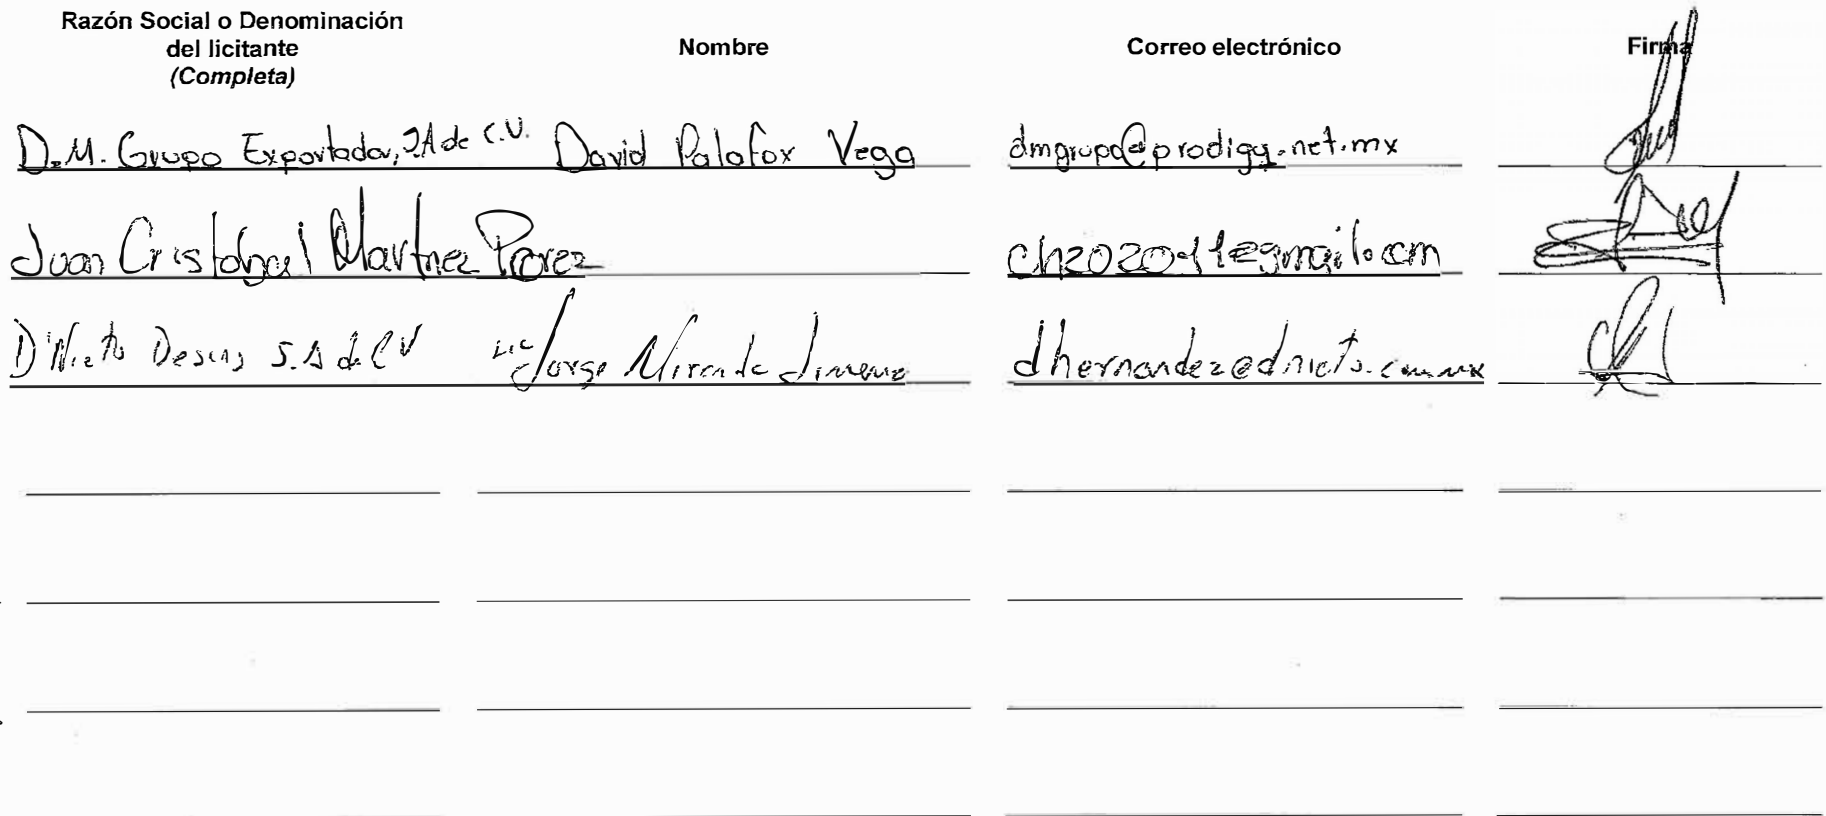 Razón Social o Denominación
del licitante
(Completa)
Nombre
Correo electrónico
Firma
D.M. Grupo Exportador, SA de C.V. David Palafox Vega dmgrupo@prodigy.net.mx
Juan Cristobal Martinez Perez ch202011@gmail.com
D'Nieto S.A de CV Lic Jorge Miranda Jimenez dhernandez@dnieto.com.mx